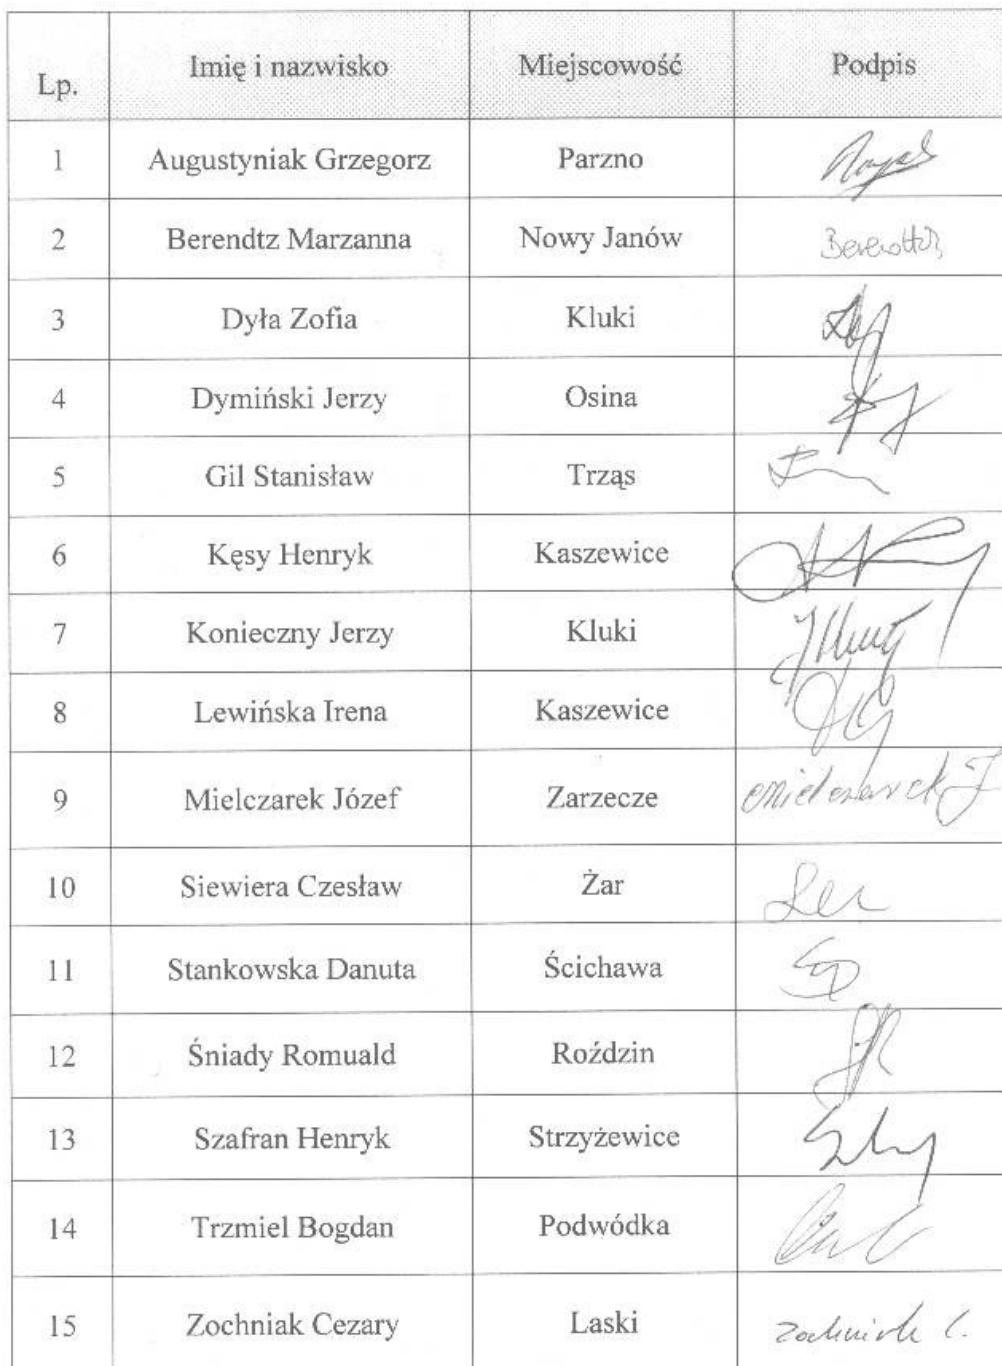 Lp. Imię i nazwisko Miejscowość Podpis
1 Augustyniak Grzegorz Parzno
2 Berendtz Marzanna Nowy Janów
3 Dyła Zofia Kluki
4 Dymiński Jerzy Osina
5 Gil Stanisław Trząs
6 Kęsy Henryk Kaszewice
7 Konieczny Jerzy Kluki
8 Lewińska Irena Kaszewice
9 Mielczarek Józef Zarzecze Mielczarek J
10 Siewiera Czesław Żar
11 Stankowska Danuta Ścichawa
12 Śniady Romuald Roździn
13 Szafran Henryk Strzyżewice
14 Trzmiel Bogdan Podwódka
15 Zochniak Cezary Laski Zochniak C.